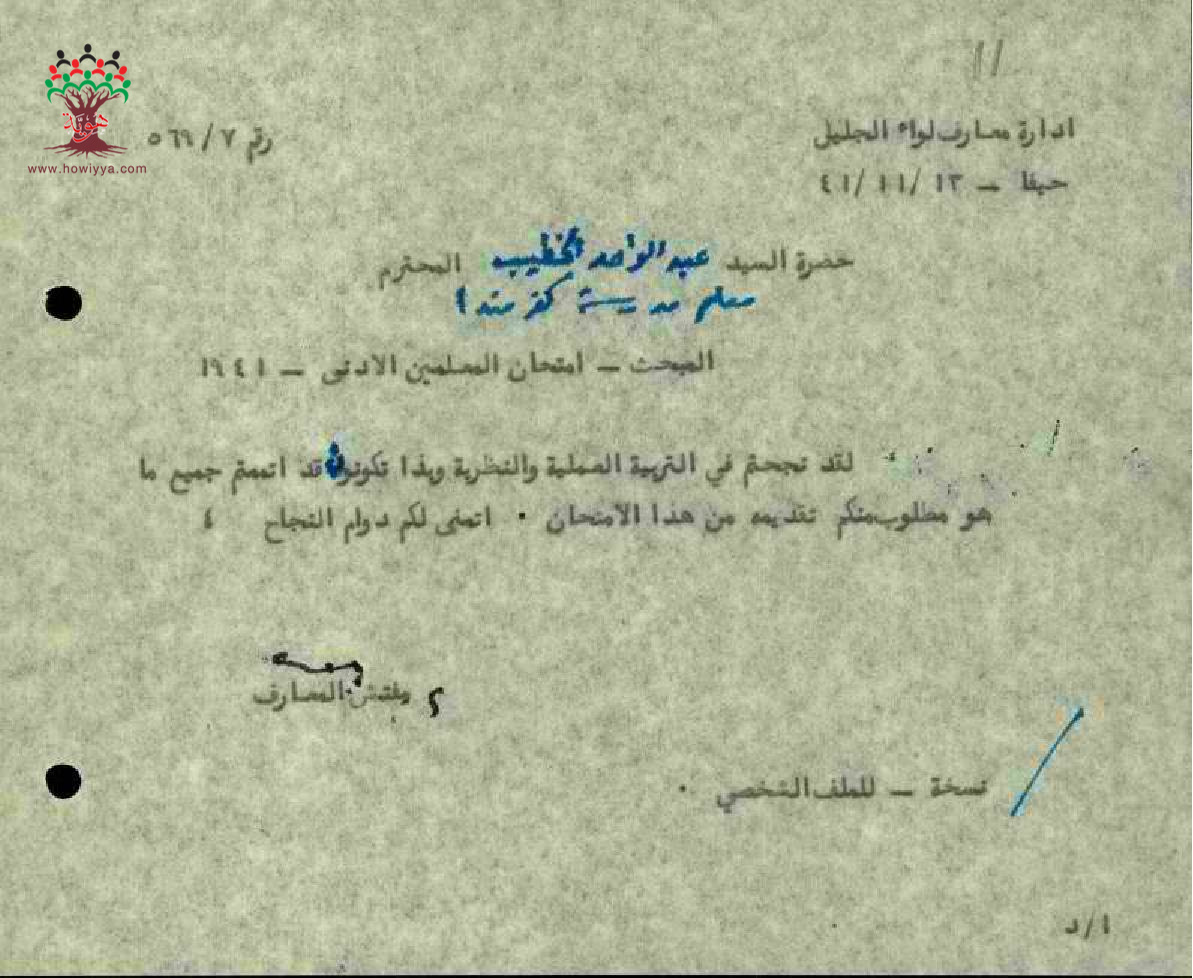 ١١
ادارة معارف لواء الجليل
رقم ٧/ ٥٦٩
حيفا – ١٣ /١١ /٤١
حضرة السيد عبد الواحد الخطيب المحترم
معلم مدرسة كفر مندا
المبحث – امتحان المعلمين الادنى – ١٩٤١
لقد نجحتم في التربية العملية والنظرية وبذا تكونون قد اتممتم جميع ما
هو مطلوب منكم تقديمه من هذا الامتحان ٠ اتمنى لكم دوام النجاح ٤
مفتش المعارف
نسخة – للملف الشخصي ٠
ا/د
هوية
www.howiyya.com